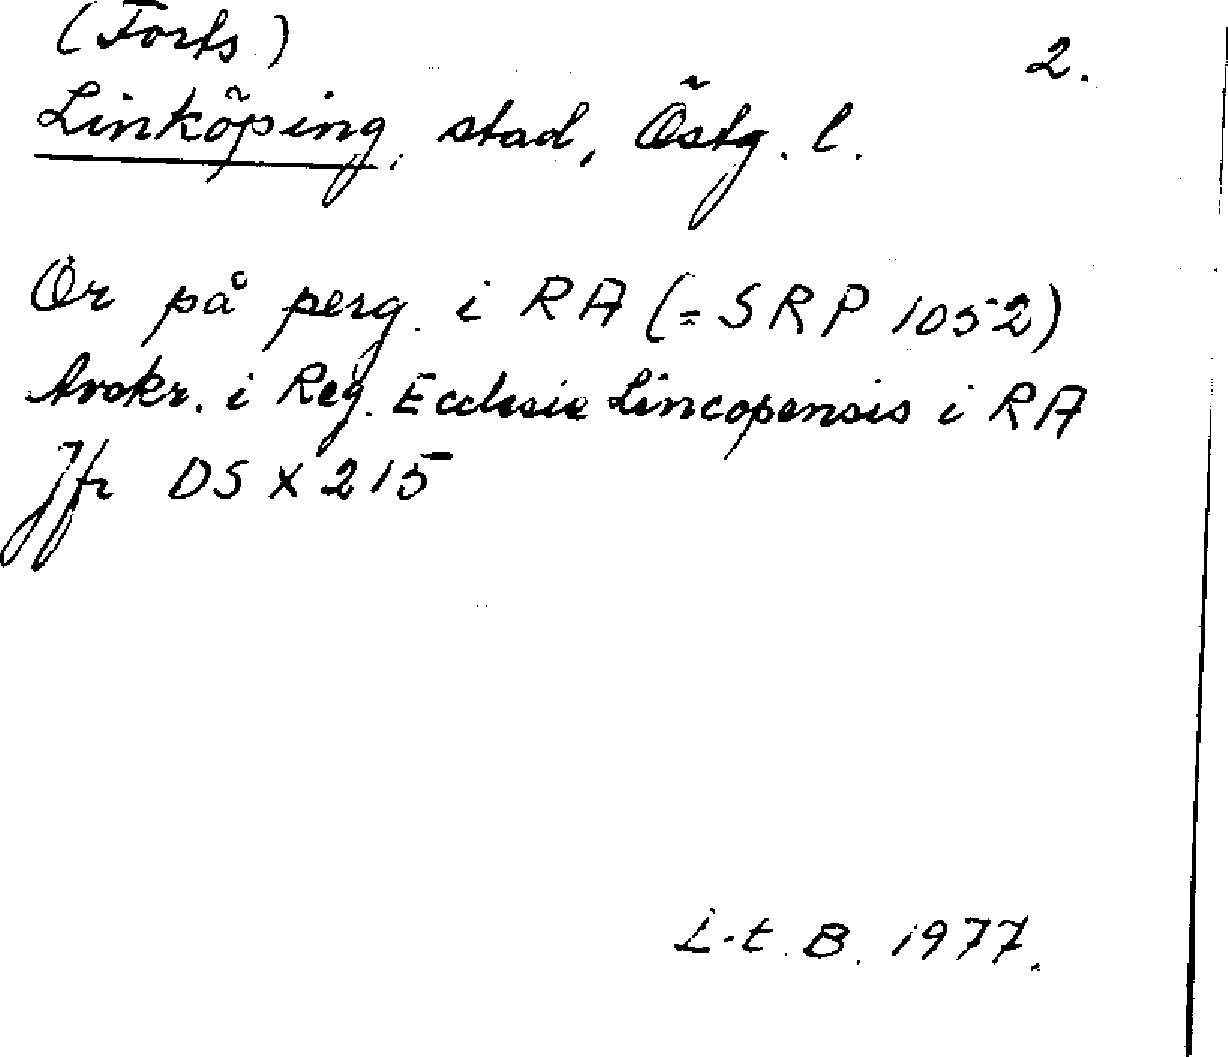 (Forts) 2.
Linköping, stad, Östg. l.
Or på perg. i RA (= SRP 1052)
Avskr. i Reg. Ecclesie Lincopensis i RA
Jfr DS X 215
L-t. B. 1977.